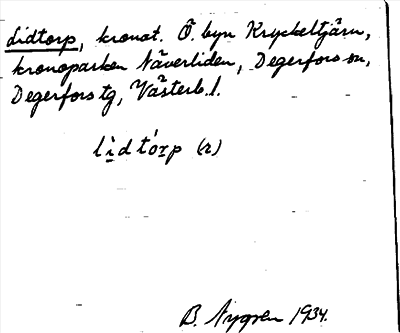 Lidtorp, kronot. Ö. byn Kryckeltjärn,
kronoparken Näverliden, Degerfors sn,
Degerfors tg, Västerb. l.
lìdtórp (r)
B. Nygren 1934.